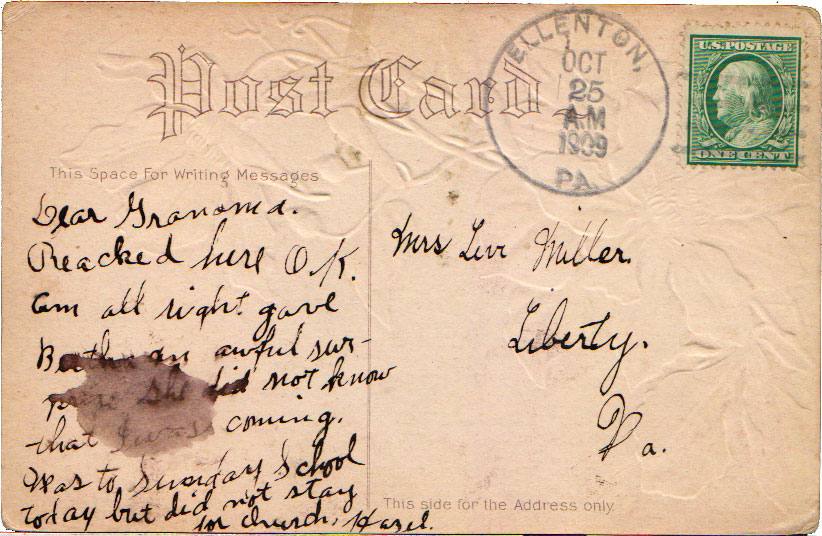 Post Card
ELLENTON,
OCT
25
AM
1909
PA.
U.S. POSTAGE
ONE CENT
This Space For Writing Messages
Dear Grandma.
Reached here O.K.
am all right gave
Bertha an awful sur-
prize she did not know
that I was coming.
Was to Sunday School
today but did not stay
for church, Hazel.
Mrs Levi Miller.
Liberty.
Pa.
This side for the Address only